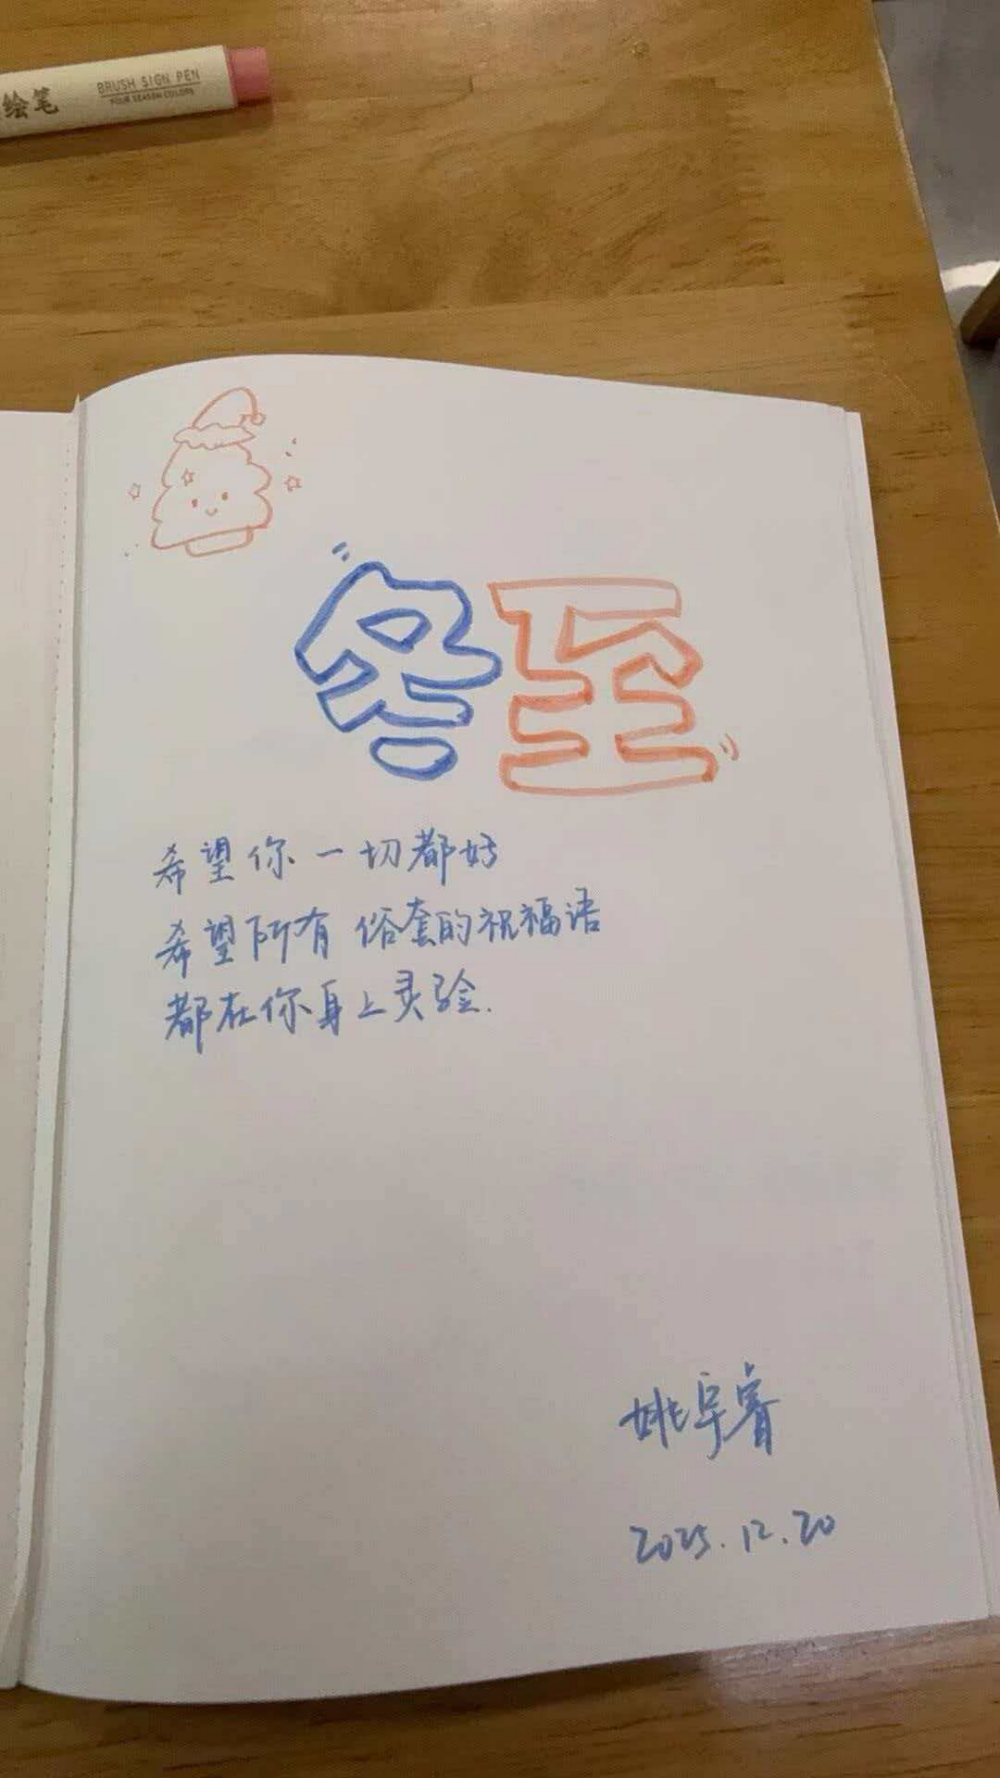 绘笔
BRUSH SIGN PEN
FOUR SEASON COLORS
冬至
希望你一切都好
希望所有俗套的祝福语
都在你身上灵验.
姚宇睿
2025.12.20